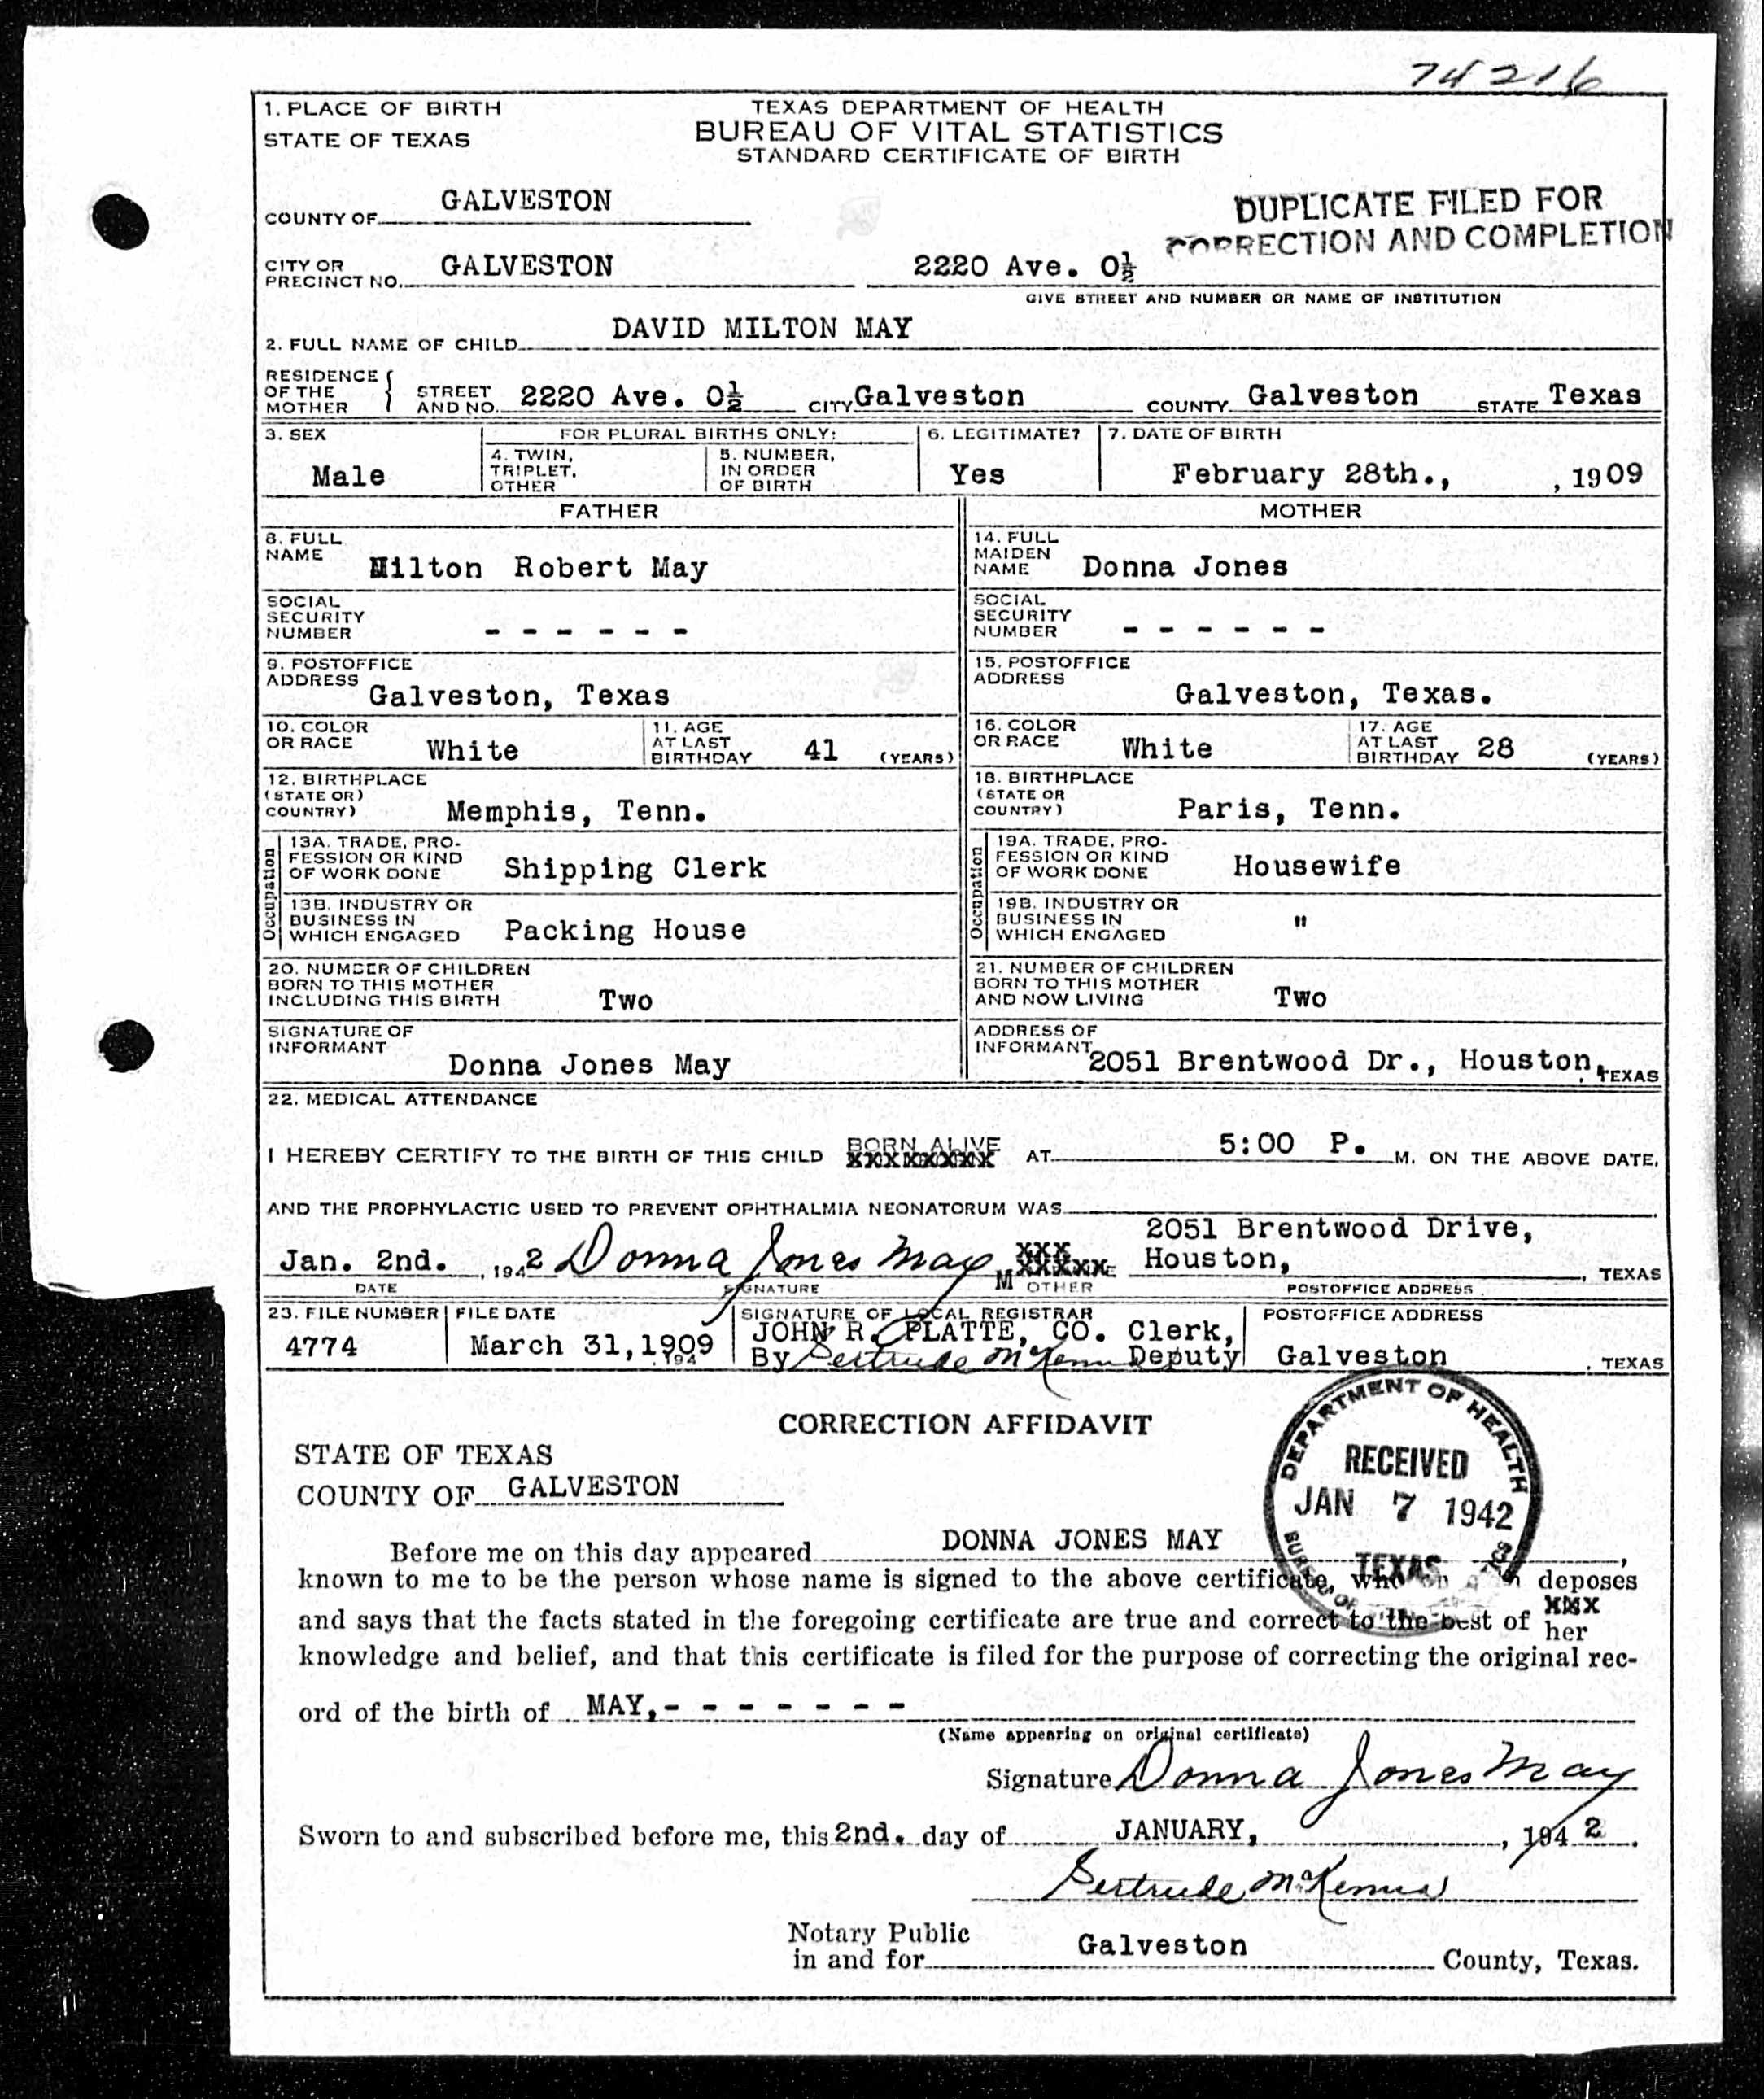 74216
1. PLACE OF BIRTH
STATE OF TEXAS
TEXAS DEPARTMENT OF HEALTH
BUREAU OF VITAL STATISTICS
STANDARD CERTIFICATE OF BIRTH
COUNTY OF GALVESTON
DUPLICATE FILED FOR
CORRECTION AND COMPLETION
CITY OR
PRECINCT NO. GALVESTON 2220 Ave. O½
GIVE STREET AND NUMBER OR NAME OF INSTITUTION
2. FULL NAME OF CHILD DAVID MILTON MAY
RESIDENCE
OF THE
MOTHER
STREET
AND NO. 2220 Ave. O½ CITY Galveston COUNTY Galveston STATE Texas
3. SEX
Male
FOR PLURAL BIRTHS ONLY:
4. TWIN,
TRIPLET,
OTHER
5. NUMBER,
IN ORDER
OF BIRTH
6. LEGITIMATE?
Yes
7. DATE OF BIRTH
February 28th., , 1909
FATHER
MOTHER
8. FULL
NAME Milton Robert May
14. FULL
MAIDEN
NAME Donna Jones
SOCIAL
SECURITY
NUMBER - - - - - -
SOCIAL
SECURITY
NUMBER - - - - - -
9. POSTOFFICE
ADDRESS Galveston, Texas
15. POSTOFFICE
ADDRESS Galveston, Texas.
10. COLOR
OR RACE White
11. AGE
AT LAST
BIRTHDAY 41 (YEARS)
16. COLOR
OR RACE White
17. AGE
AT LAST
BIRTHDAY 28 (YEARS)
12. BIRTHPLACE
(STATE OR)
COUNTRY) Memphis, Tenn.
18. BIRTHPLACE
(STATE OR
COUNTRY) Paris, Tenn.
Occupation
13A. TRADE, PRO-
FESSION OR KIND
OF WORK DONE Shipping Clerk
13B. INDUSTRY OR
BUSINESS IN
WHICH ENGAGED Packing House
Occupation
19A. TRADE, PRO-
FESSION OR KIND
OF WORK DONE Housewife
19B. INDUSTRY OR
BUSINESS IN
WHICH ENGAGED "
20. NUMBER OF CHILDREN
BORN TO THIS MOTHER
INCLUDING THIS BIRTH Two
21. NUMBER OF CHILDREN
BORN TO THIS MOTHER
AND NOW LIVING Two
SIGNATURE OF
INFORMANT
Donna Jones May
ADDRESS OF
INFORMANT 2051 Brentwood Dr., Houston, TEXAS
22. MEDICAL ATTENDANCE
I HEREBY CERTIFY TO THE BIRTH OF THIS CHILD BORN ALIVE AT 5:00 P. M. ON THE ABOVE DATE,
AND THE PROPHYLACTIC USED TO PREVENT OPHTHALMIA NEONATORUM WAS
2051 Brentwood Drive,
Jan. 2nd. , 1942 Donna Jones May M OTHER Houston, , TEXAS
DATE SIGNATURE POSTOFFICE ADDRESS
23. FILE NUMBER
4774
FILE DATE
March 31,1909
, 194
SIGNATURE OF LOCAL REGISTRAR
JOHN R. PLATTE, CO. Clerk,
By Gertrude McKenna Deputy
POSTOFFICE ADDRESS
Galveston , TEXAS
CORRECTION AFFIDAVIT
DEPARTMENT OF HEALTH
RECEIVED
JAN 7 1942
TEXAS
STATE OF TEXAS
COUNTY OF GALVESTON
Before me on this day appeared DONNA JONES MAY ,
known to me to be the person whose name is signed to the above certificate, deposes
and says that the facts stated in the foregoing certificate are true and correct to the best of her
knowledge and belief, and that this certificate is filed for the purpose of correcting the original rec-
ord of the birth of MAY,- - - - - - -
(Name appearing on original certificate)
Signature Donna Jones May
Sworn to and subscribed before me, this 2nd. day of JANUARY, , 1942.
Gertrude McKenna
Notary Public
in and for Galveston County, Texas.